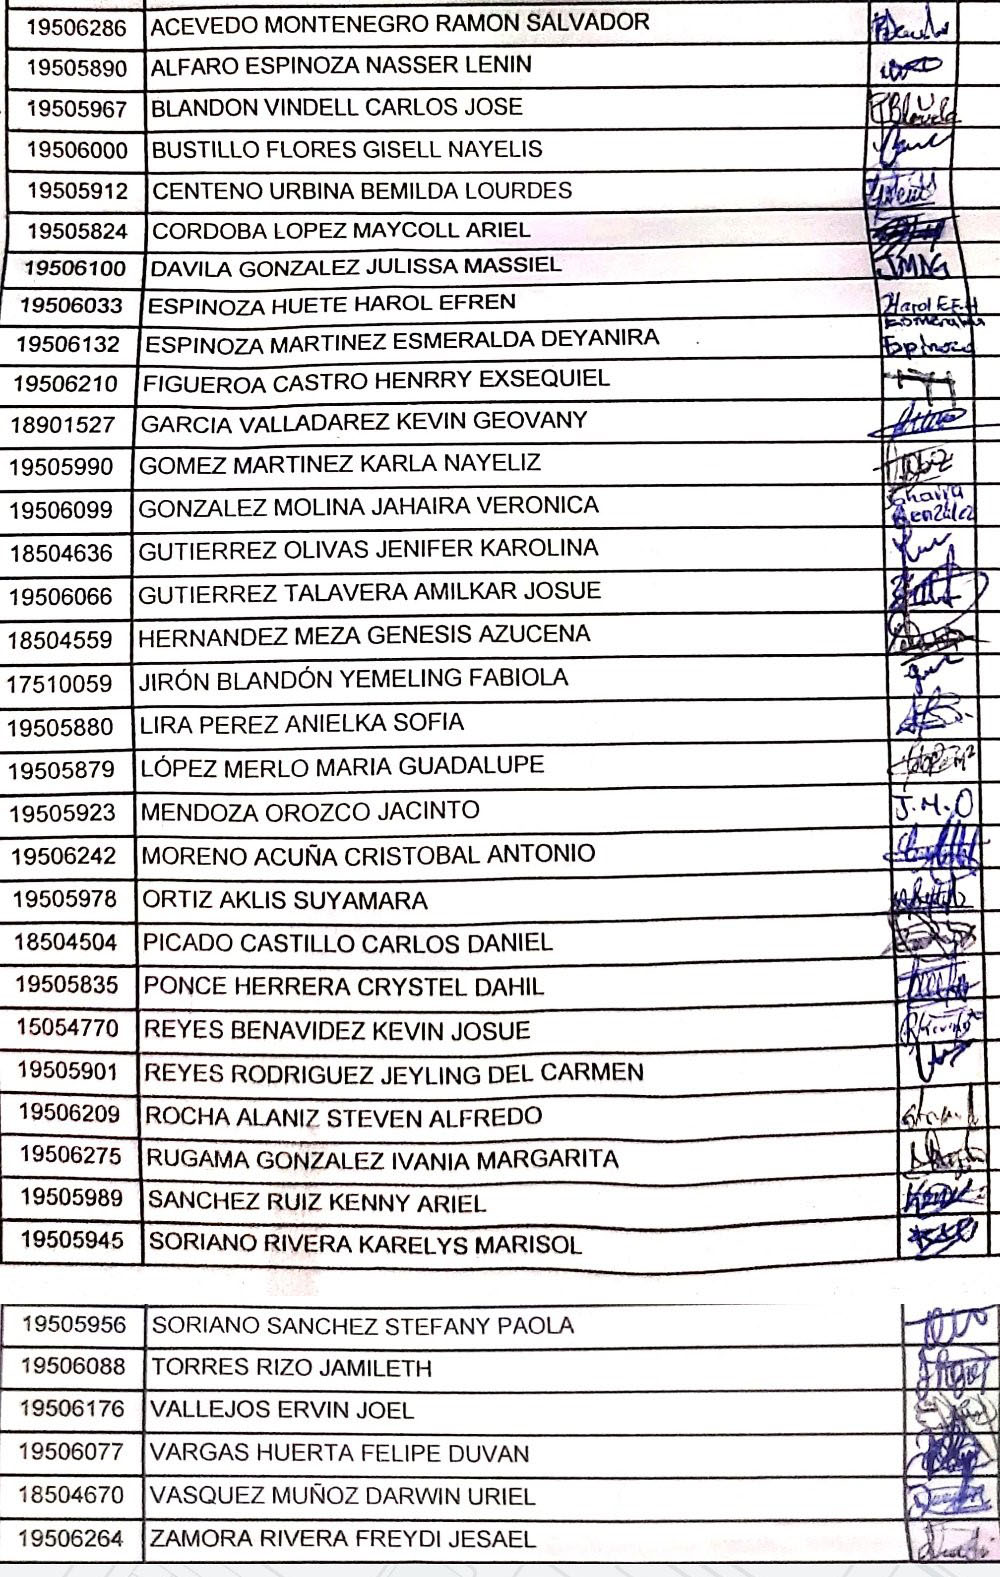 19506286 ACEVEDO MONTENEGRO RAMON SALVADOR
19505890 ALFARO ESPINOZA NASSER LENIN
19505967 BLANDON VINDELL CARLOS JOSE
19506000 BUSTILLO FLORES GISELL NAYELIS
19505912 CENTENO URBINA BEMILDA LOURDES
19505824 CORDOBA LOPEZ MAYCOLL ARIEL
19506100 DAVILA GONZALEZ JULISSA MASSIEL
19506033 ESPINOZA HUETE HAROL EFREN Harol E.E.H
19506132 ESPINOZA MARTINEZ ESMERALDA DEYANIRA Esmeralda Espinoza
19506210 FIGUEROA CASTRO HENRRY EXSEQUIEL
18901527 GARCIA VALLADAREZ KEVIN GEOVANY
19505990 GOMEZ MARTINEZ KARLA NAYELIZ
19506099 GONZALEZ MOLINA JAHAIRA VERONICA
18504636 GUTIERREZ OLIVAS JENIFER KAROLINA
19506066 GUTIERREZ TALAVERA AMILKAR JOSUE
18504559 HERNANDEZ MEZA GENESIS AZUCENA
17510059 JIRÓN BLANDÓN YEMELING FABIOLA
19505880 LIRA PEREZ ANIELKA SOFIA
19505879 LÓPEZ MERLO MARIA GUADALUPE
19505923 MENDOZA OROZCO JACINTO J.M.O
19506242 MORENO ACUÑA CRISTOBAL ANTONIO
19505978 ORTIZ AKLIS SUYAMARA
18504504 PICADO CASTILLO CARLOS DANIEL
19505835 PONCE HERRERA CRYSTEL DAHIL
15054770 REYES BENAVIDEZ KEVIN JOSUE
19505901 REYES RODRIGUEZ JEYLING DEL CARMEN
19506209 ROCHA ALANIZ STEVEN ALFREDO
19506275 RUGAMA GONZALEZ IVANIA MARGARITA
19505989 SANCHEZ RUIZ KENNY ARIEL
19505945 SORIANO RIVERA KARELYS MARISOL
19505956 SORIANO SANCHEZ STEFANY PAOLA
19506088 TORRES RIZO JAMILETH
19506176 VALLEJOS ERVIN JOEL
19506077 VARGAS HUERTA FELIPE DUVAN
18504670 VASQUEZ MUÑOZ DARWIN URIEL
19506264 ZAMORA RIVERA FREYDI JESAEL